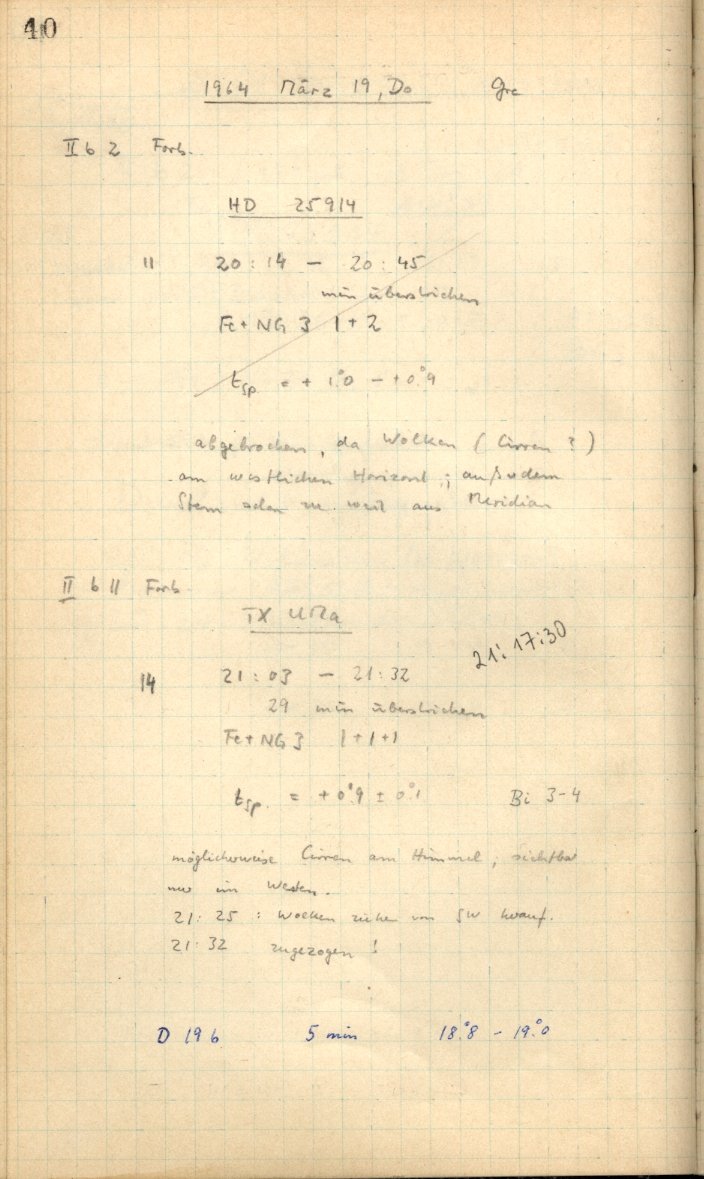 40
1964 März 19, Do Gre
II b 2 Farb.
HD 25914
11 20:14 – 20:45
min überstrichen
Fe + NG 3 1+2
t_sp = + 1°.0 – +0°.9
abgebrochen, da Wolken (Cirren ?)
am westlichen Horizont; außerdem
Stern schon zu weit aus Meridian
II b 11 Farb
TX UMa
21:17:30
14 21:03 – 21:32
29 min überstrichen
Fe + NG 3 1+1+1
t_sp. = +0°.9 ± 0°.1 Bi 3-4
möglicherweise Cirren am Himmel, sichtbar
nur im Westen.
21:25 : Wolken ziehen von SW herauf.
21:32 zugezogen !
D 196 5 min 18°.8 – 19°.0